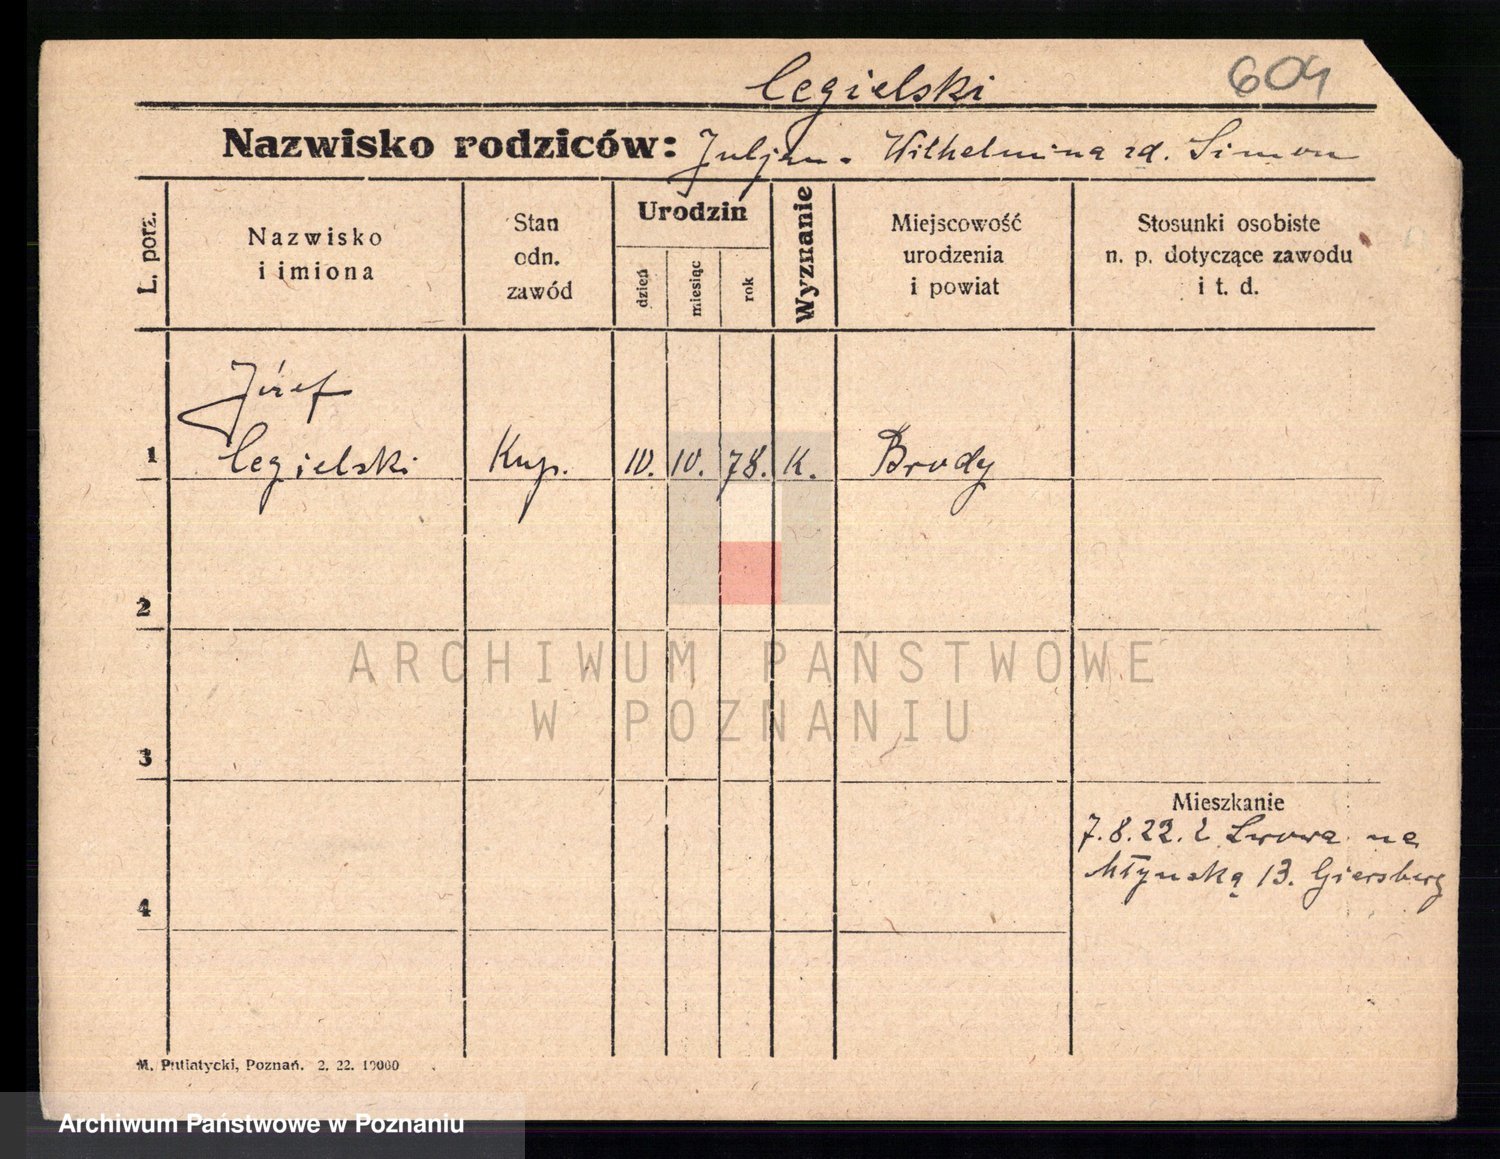 Cegielski
604
Nazwisko rodziców: Juljan. Wilhelmina zd. Simon
L. porz.
Nazwisko
i imiona
Stan
odn.
zawód
Urodzin
dzień
miesiąc
rok
Wyznanie
Miejscowość
urodzenia
i powiat
Stosunki osobiste
n. p. dotyczące zawodu
i t. d.
Józef
1 Cegielski Kup. 10. 10. 78. K. Brody
2
ARCHIWUM PAŃSTWOWE
W POZNANIU
3
Mieszkanie
7.8.22. z Lwowa na
Młyńską 13. Giersberg
4
M. Putiatycki, Poznań. 2. 22. 10000
Archiwum Państwowe w Poznaniu